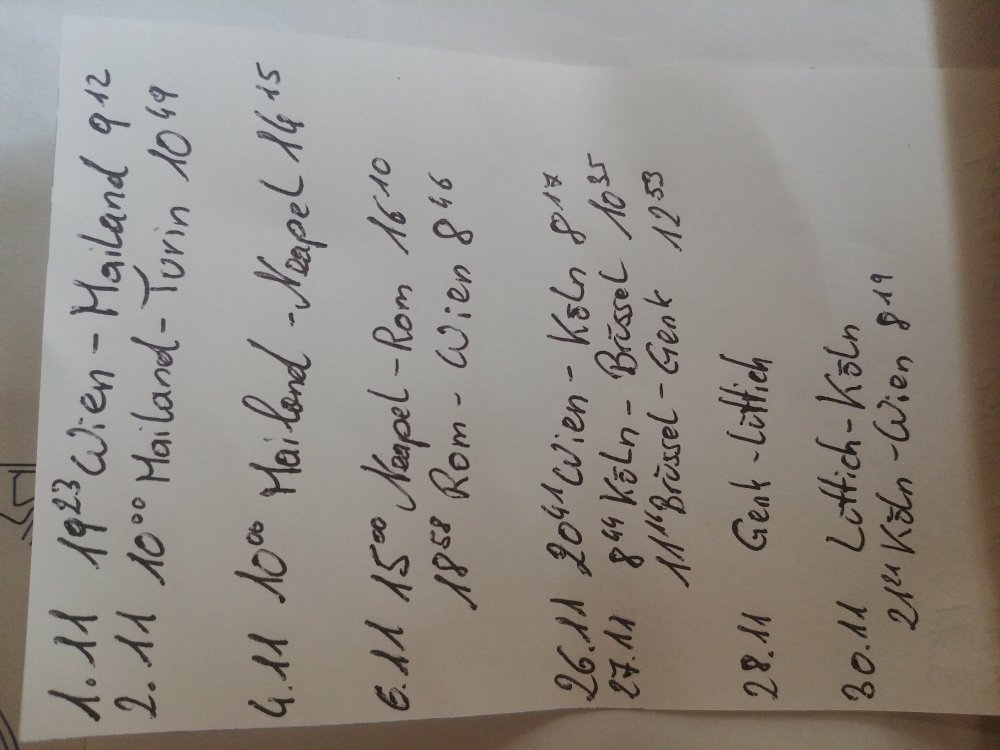 1.11 19²³ Wien - Mailand 9¹²
2.11 10⁰⁰ Mailand - Turin 10⁴⁹
4.11 10⁰⁰ Mailand - Neapel 14¹⁵
6.11 15⁰⁰ Neapel - Rom 16¹⁰
18⁵⁸ Rom - Wien 8⁴⁶
26.11 20⁴¹ Wien - Köln 8¹⁷
27.11 8⁴⁴ Köln - Brüssel 10³⁵
11¹⁴ Brüssel - Genk 12⁵³
28.11 Genk - Lüttich
30.11 Lüttich - Köln
21²¹ Köln - Wien 8¹⁹